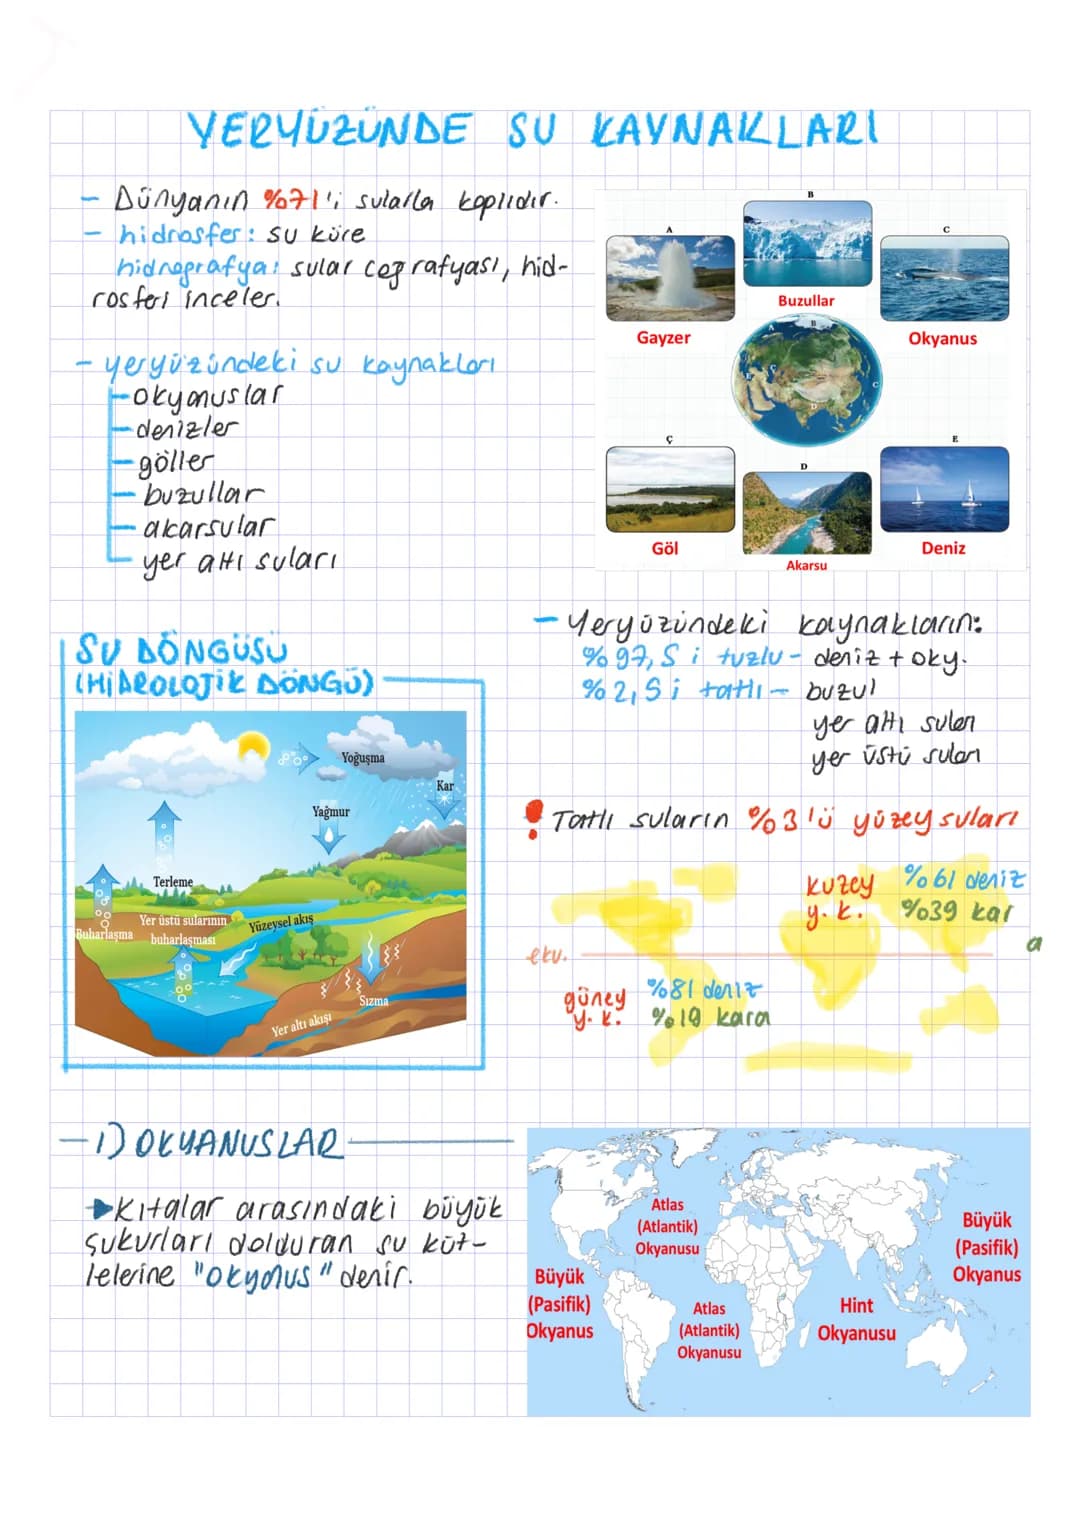 YERYÜZÜNDE SU KAYNAKLARI
- Dünyanın %71'i sularla kaplıdır.
- hidrosfer: su küre
hidrografya: sular coğrafyası, hid-
rosferi inceler.
- yeryüzündeki su kaynakları
- okyanuslar
- denizler
- göller
- buzullar
- akarsular
- yer altı suları
A
Gayzer
B
Buzullar
C
Okyanus
A
B
C
Ç
D
E
Ç
Göl
D
Akarsu
E
Deniz
SU DÖNGÜSÜ
(HİDROLOJİK DÖNGÜ)
Yoğuşma
Kar
Yağmur
Terleme
Buharlaşma
Yer üstü sularının
buharlaşması
Yüzeysel akış
Sızma
Yer altı akışı
- Yeryüzündeki kaynakların:
%97,5 i tuzlu - deniz + oky.
%2,5 i tatlı - buzul
yer altı suları
yer üstü suları
! Tatlı suların %3'ü yüzey suları
kuzey %61 deniz
y. k. %39 kar
a
ekv.
güney %81 deniz
y. k. %19 kara
- 1) OKYANUSLAR
Kıtalar arasındaki büyük
çukurları dolduran su küt-
lelerine "okyanus" denir.
Atlas
(Atlantik)
Okyanusu
Büyük
(Pasifik)
Okyanus
Büyük
(Pasifik)
Okyanus
Atlas
(Atlantik)
Okyanusu
Hint
Okyanusu